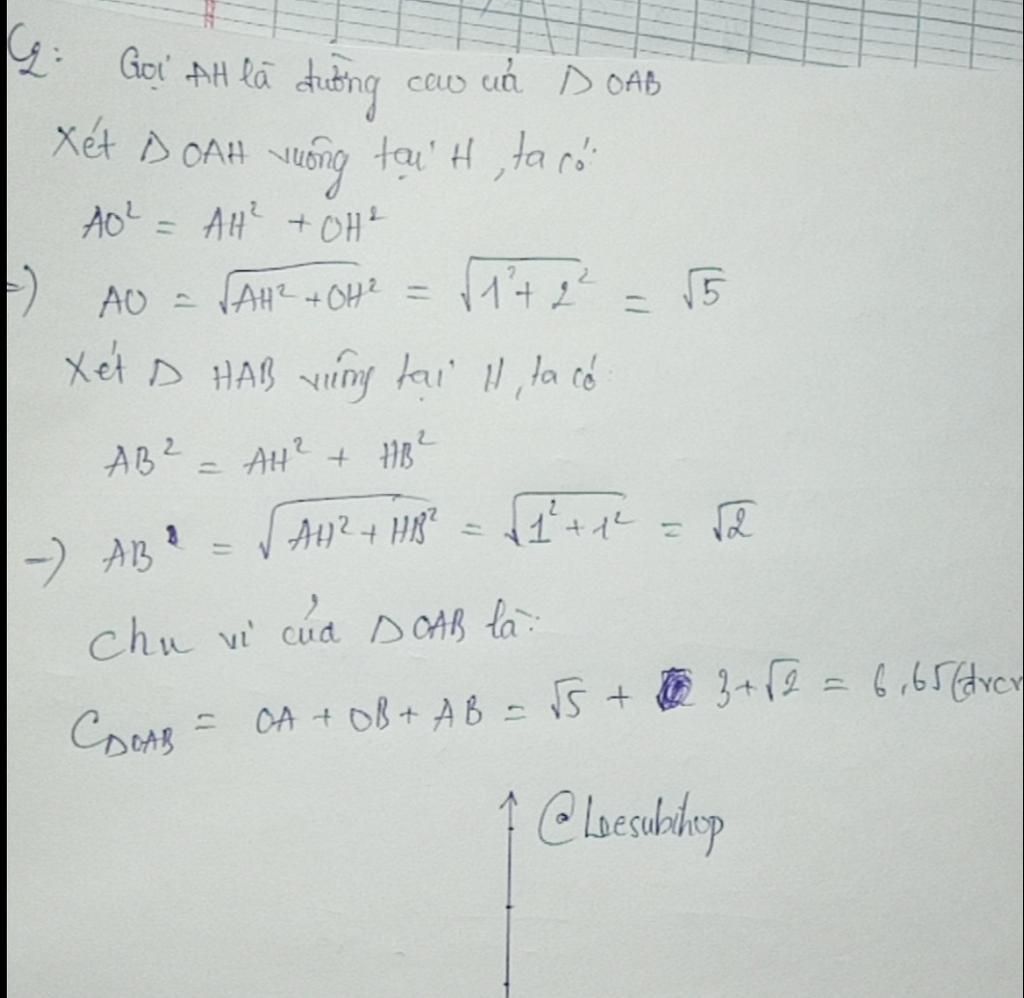 C2: Gọi AH là đường cao của Δ OAB
Xét Δ OAH vuông tại H, ta có:
AO² = AH² + OH²
=) AO = √AH² + OH² = √1² + 2² = √5
Xét Δ HAB vuông tại H, ta có:
AB² = AH² + HB²
-) AB = √AH² + HB² = √1² + 1² = √2
Chu vi của ΔOAB là:
CΔOAB = OA + OB + AB = √5 + 3 + √2 = 6,65 (đvcv
@Loesubihop